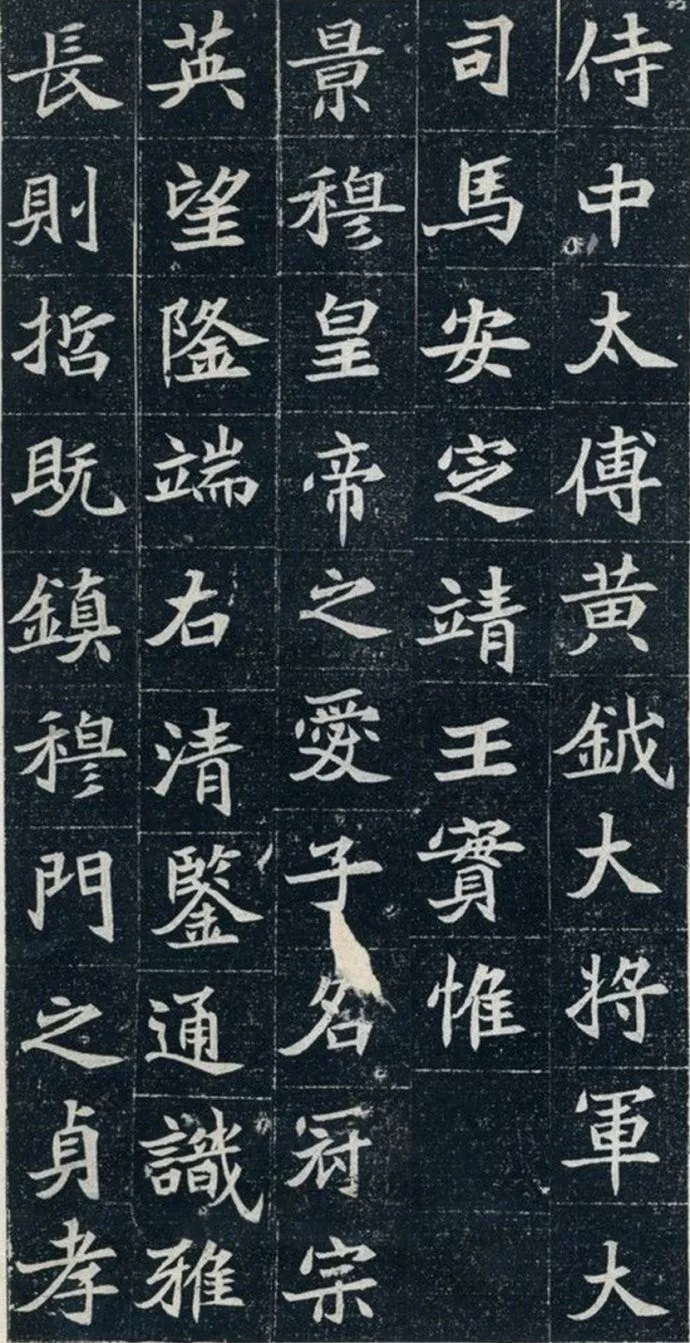 侍中太傅黄鉞大將軍大
司馬安定靖王實惟
景穆皇帝之愛子名冠宗
英望隆端右清鑒通識雅
長則哲既鎮穆門之貞孝